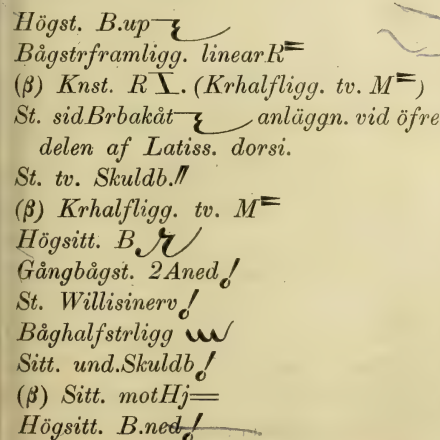 Högst. B.up
Bågstrframligg. linearR=
(β) Knst. R X. (Krhalfligg. tv. M=)
St. sidBrbakåt anläggn. vid öfre
delen af Latiss. dorsi.
St. tv. Skuldb.//
(β) Krhalfligg. tv. M=
Högsitt. B
Gångbågst. 2Aned!
St. Willisinerv!
Båghalfstrligg
Sitt. und.Skuldb!
(β) Sitt. motHj=
Högsitt. B.ned!